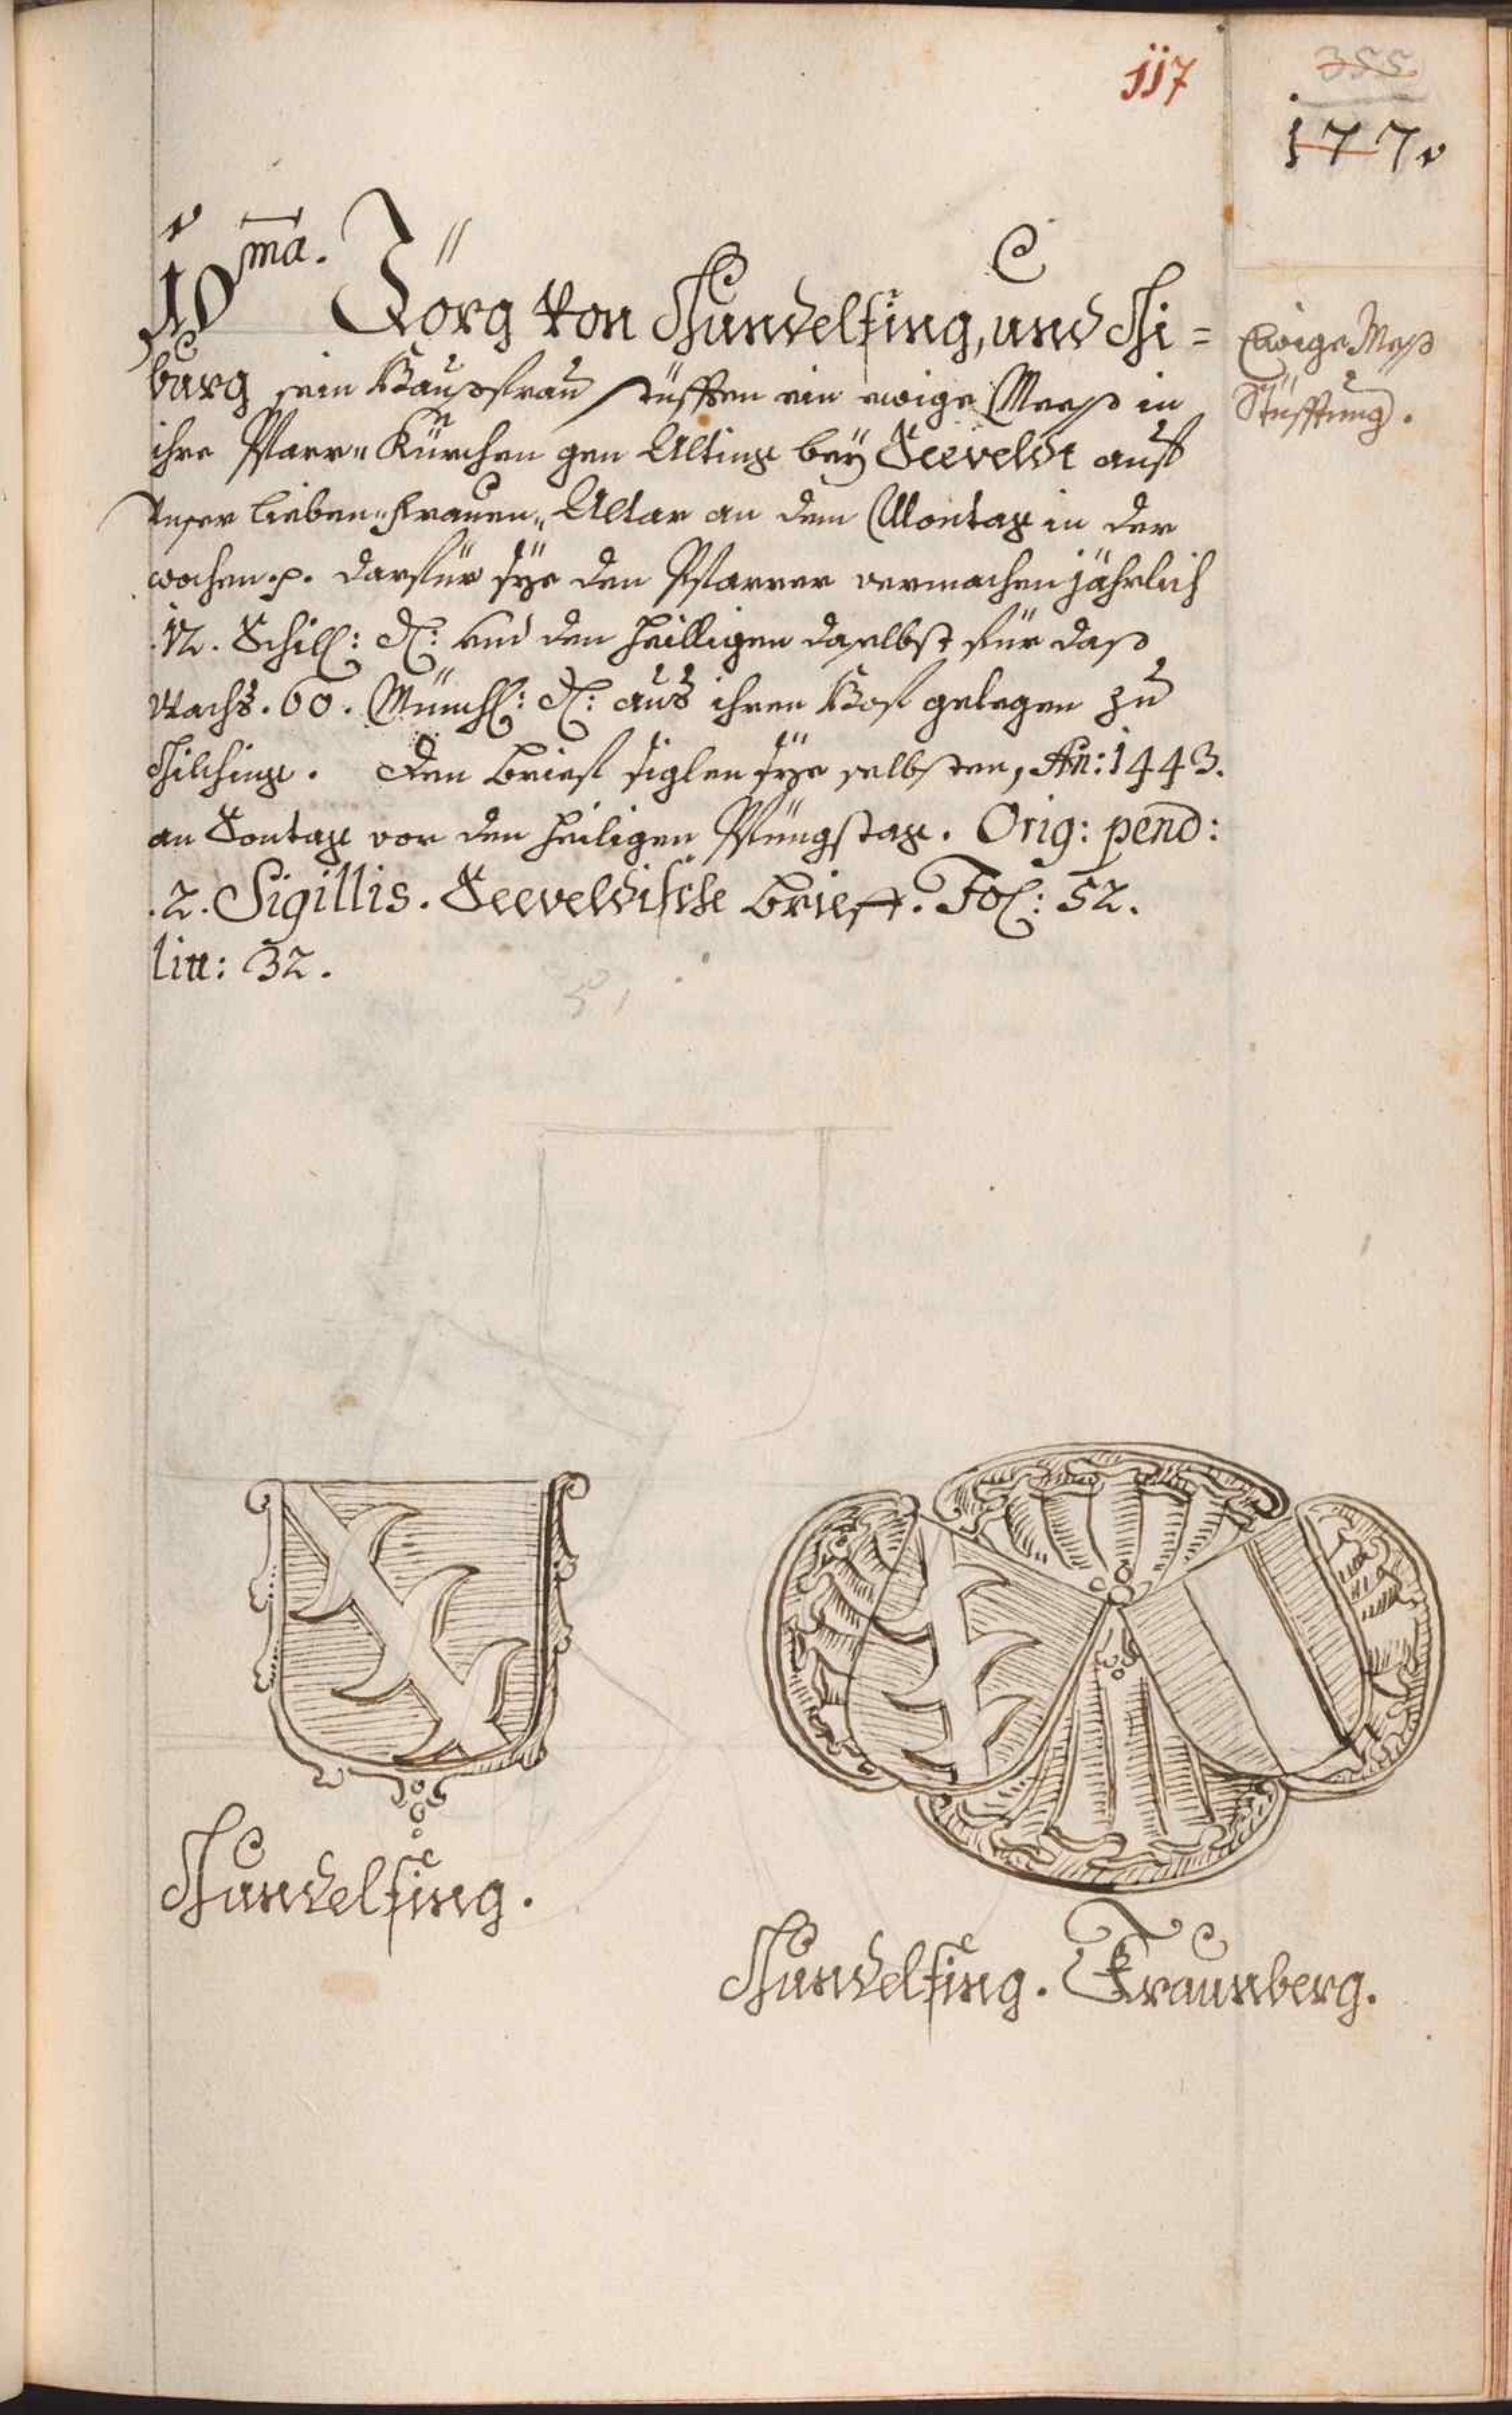 117
355
177.
10ma. Jörg von Gundelfing, und Gi=
burg sein Haußfrau stüfften ein ewige Mesß in
ihre Pfarr„Kürchen gen Alting bey Seeveldt auf
Unser lieben„frauen„Altar an dem Montag in der
wochen .p. darfür sÿe dem Pfarrer vermachen jährlich
.12. Schill: d: und den heilligen daselbst für daß
Wachs .60. Münch: d: aus ihren Hof gelegen zu
Gilching. Den brief siglen sÿe selbsten, An: 1443.
an Sontag vor den heiligen Pfüngstag. Orig: pend:
.2. Sigillis. Seeveldische brieff. Fol: 52.
litt: 32.
Ewige Mesß
Stüfftung.
Gundelfing.
Gundelfing. Fraunberg.